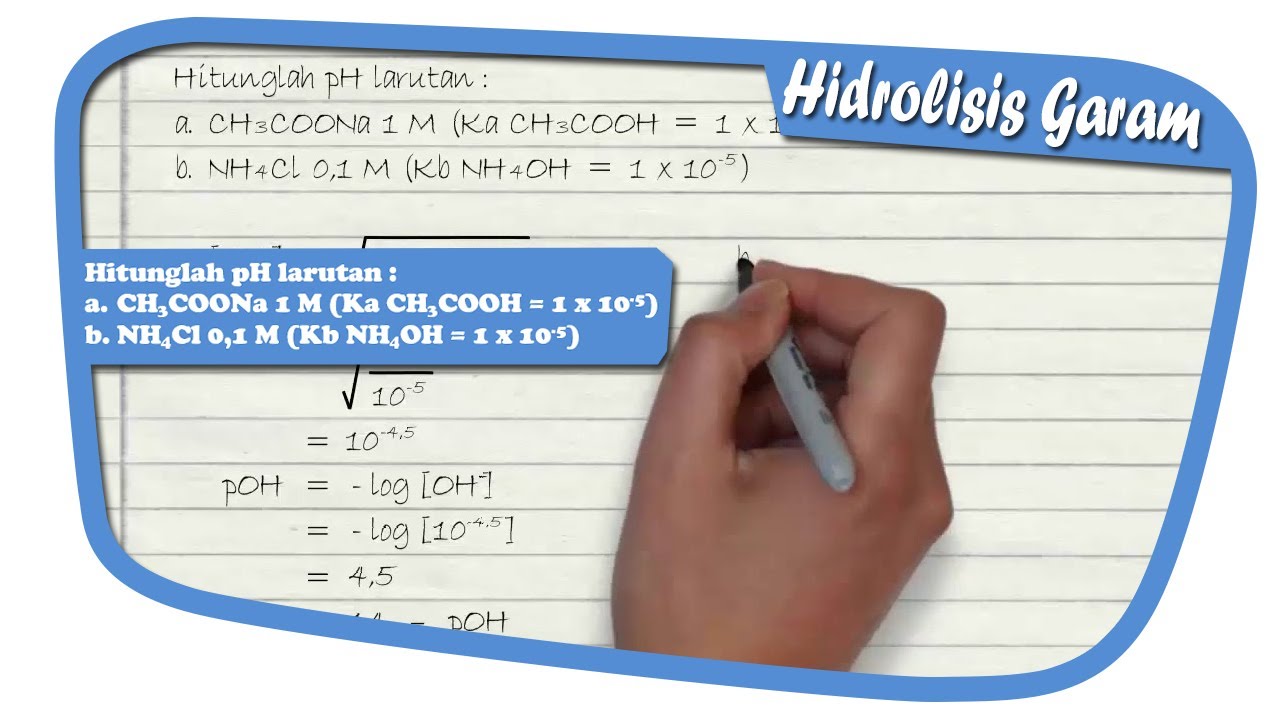 Hidrolisis Garam
Hitunglah pH larutan :
a. CH₃COONa 1 M (Ka CH₃COOH = 1 x 1
b. NH₄Cl 0,1 M (Kb NH₄OH = 1 x 10⁻⁵)
Hitunglah pH larutan :
a. CH₃COONa 1 M (Ka CH₃COOH = 1 x 10⁻⁵)
b. NH₄Cl 0,1 M (Kb NH₄OH = 1 x 10⁻⁵)
10⁻⁵
= 10⁻⁴,⁵
pOH = - log [OH⁻]
= - log [10⁻⁴,⁵]
= 4,5
- pOH